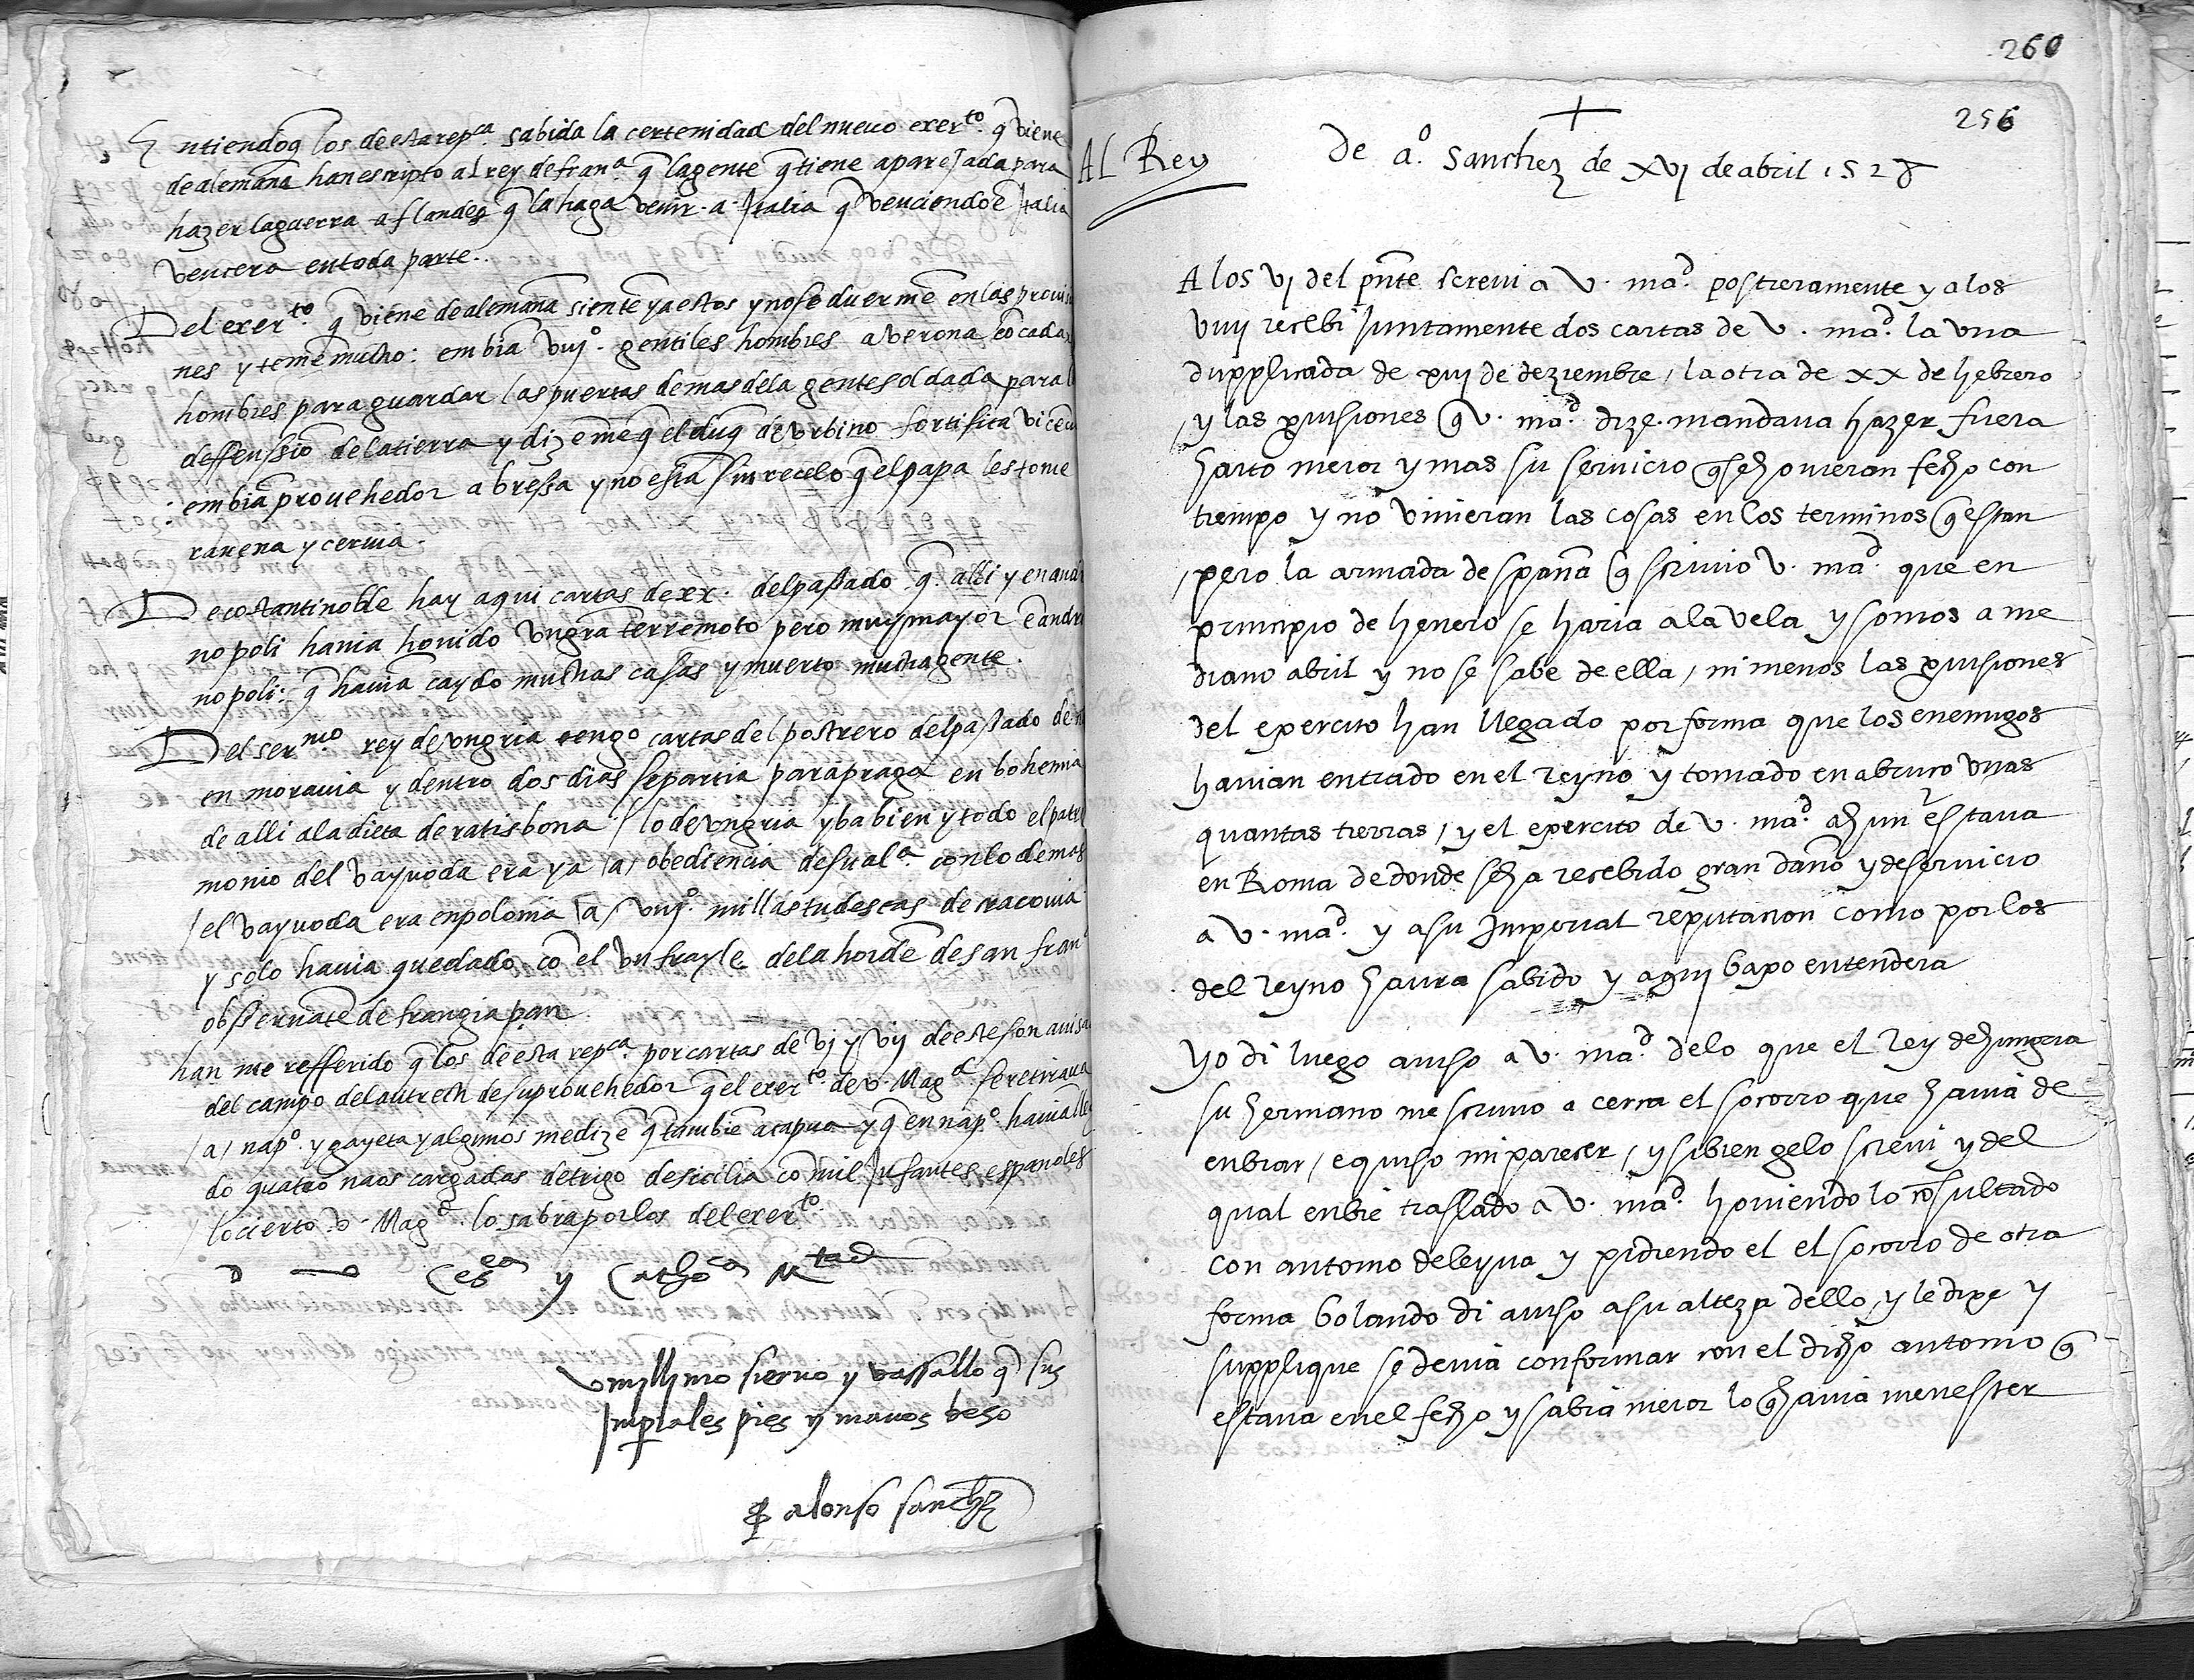 Entiendo q̃ los de esta repca. sabida la certenidad del nueuo exerto. q̃ viene
de alemaña han escripto al rey de frana. q̃ la gente q̃ tiene aparejada para
hazer la guerra a flandes q̃ la haga venir a Italia q̃ venciendo ẽ Italia
vencera en toda parte.
Del exerto. q̃ viene de alemaña sientẽ ya estos y no se duermẽ en las prouisio
nes y temẽ mucho: embiã viijo. gentiles hombres a verona cõ cada
hombres para guardar las puertas de mas de la gente soldada para la
deffenssiõ de la tierra y dizẽme q̃ el duq̃ de vrbino fortifica vicẽ
embiã prouehedor a bressa y no estã sin recelo q̃ el papa les tome
rauena y ceruia.
De costantinoble hay aqui cartas de xx. del passado q̃ alli y en
nopoli hauia houido vn grã terremoto pero muy mayor ẽ andri
nopoli: q̃ hauiã caydo muchas casas y muerto mucha gente.
Del sermo rey de vngria tengo cartas del postrero del passado de
en morauia y dentro dos dias se partia para praga en bohemia
de alli a la dieta de ratisbona / lo de vngria yba bien y todo el patri
monio del vayuoda era ya /a/ obediencia de su ala. con lo demas
/el vayuoda era en polonia /a/ viijo. millas tudescas de cracouia
y solo hauia quedado cõ el vn frayle de la hordẽ de san frano
obseruãte de frangiapan
han me refferido q̃ los de esta repca. por cartas de vj y vij de este son auisa
del campo de lautrech de su prouehedor q̃ el exerto. de v. Magd. se retiraua
/a/ napo. y gayeta y algunos me dizẽ q̃ tambiẽ a capua y q̃ en napo. hauia lle
do quatro naos cargadas de trigo de sicilia cõ mil Infantes españoles
lo cierto v. Magd. lo sabra por los del exerto.
Cesea y Cathoca Mtad
vmyllimo sieruo y vassallo q̃ sus
Imperiales pies y manos beso
alonso sanchez
260
256
+
Al Rey
De ao. sanchez de xvj de abril 1528
A los vj del pnte screui a v. mad. postreramente y a los
viij recebi juntamente dos cartas de v. mad. la vna
dupplicada de xiij de deziembre / la otra de xx de hebrero
/ y las prouisiones q̃ v. mad. dize mandaua hazer fuera
harto meior y mas su seruicio q̃ se houieran fecho con
tiempo y no vinieran las cosas en los terminos q̃ estan
/ pero la armada despaña q̃ scriuio v. mad. que en
principio de henero se haria a la vela y somos a me
diano abril y no se sabe de ella / ni menos las prouisiones
del exercito han llegado por forma que los enemigos
hauian entrado en el reyno y tomado en abruço vnas
quantas tierras / y el exercito de v. mad. ahun estaua
en Roma de donde se ha recebido gran daño y deseruicio
a v. mad. y a su Imperial reputacion como por los
del reyno haura sabido y aqui baxo entendera
yo di luego auiso a v. mad. de lo que el rey de hungria
su hermano me scriuio a cerca el socorro que hauia de
enbiar / e quiso mi parecer / y si bien gelo screui y del
qual enbie traslado a v. mad. houiendo lo cõsultado
con antonio de leyua y pidiendo el el socorro de otra
forma bolando di auiso a su alteza dello / y le dixe y
supplique se deuia conformar con el dicho antonio q̃
estaua en el fecho y sabia meior lo q̃ hauia menester